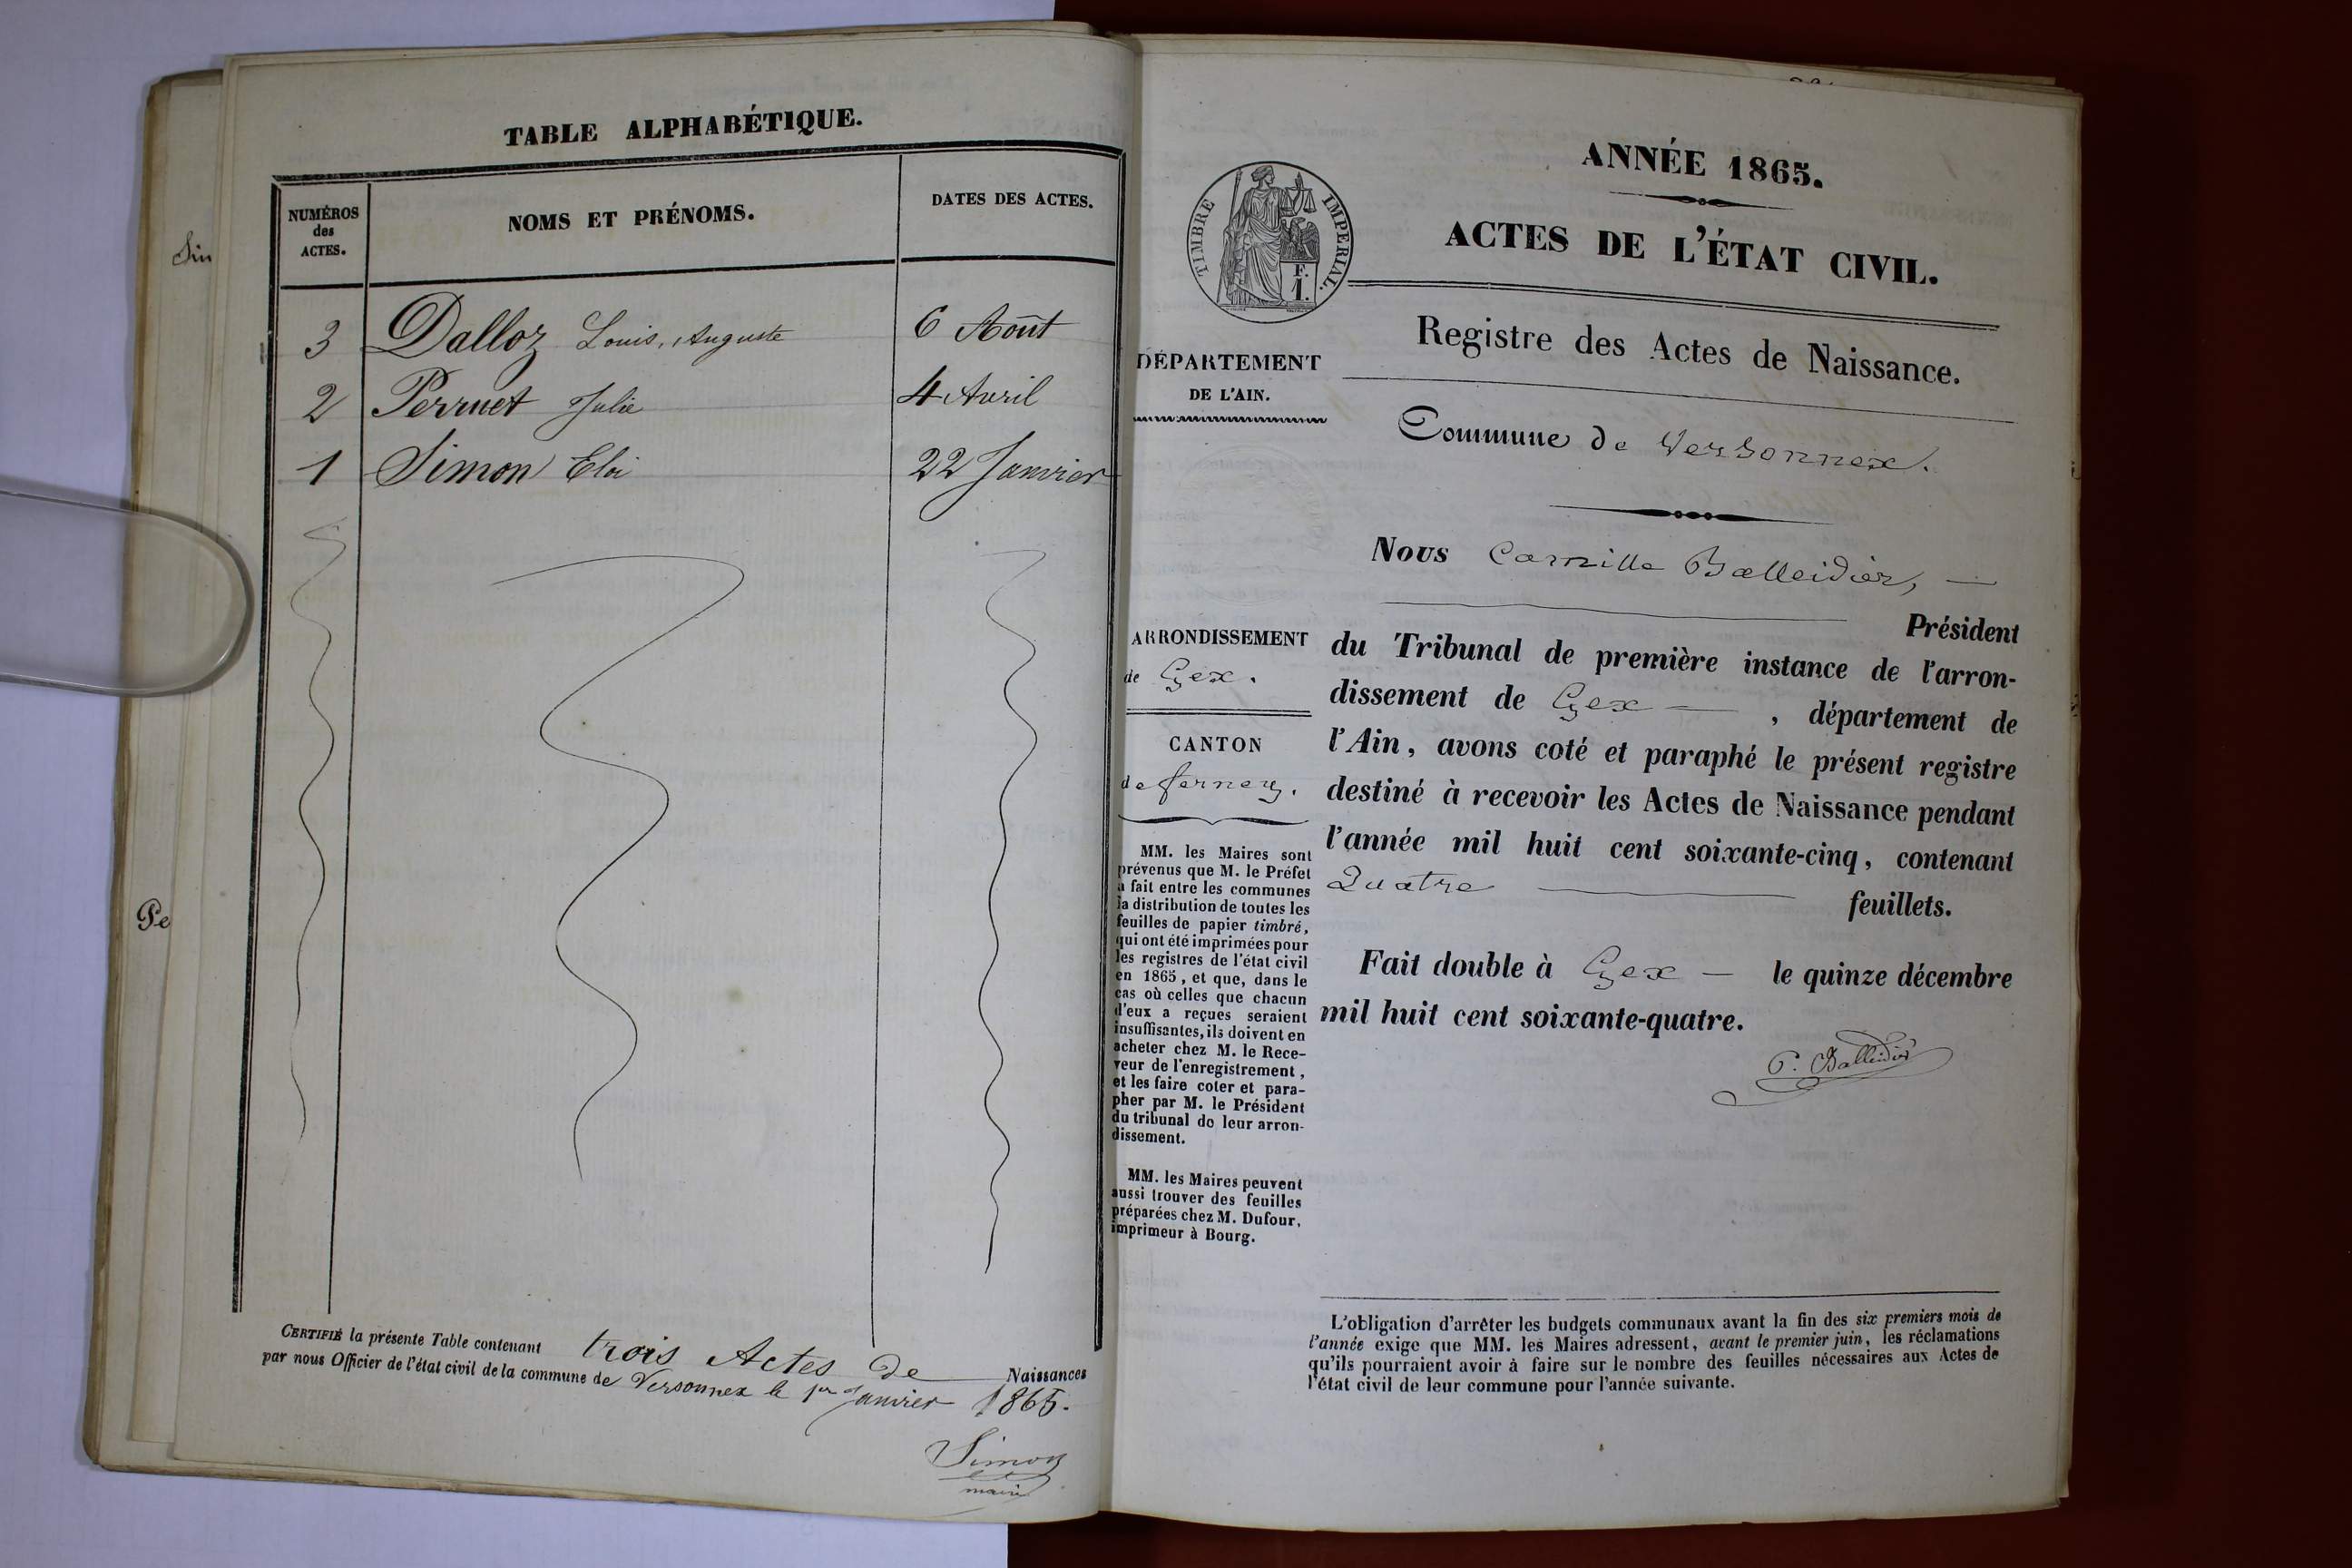 Sin
Pe
TABLE ALPHABÉTIQUE.
NUMÉROS
des
ACTES.
NOMS ET PRÉNOMS.
DATES DES ACTES.
3 Dalloz Louis, Auguste 6 Août
2 Perruet Julie 4 Avril
1 Simon Eloi 22 Janvier
CERTIFIÉ la présente Table contenant trois Actes de Naissances
par nous Officier de l'état civil de la commune de Versonnex le 1er Janvier 1865.
Simon
maire
TIMBRE IMPERIAL.
F.
1.
DÉPARTEMENT
DE L'AIN.
ARRONDISSEMENT
de Gex.
CANTON
de ferney.
MM. les Maires sont
prévenus que M. le Préfet
a fait entre les communes
la distribution de toutes les
feuilles de papier timbré,
qui ont été imprimées pour
les registres de l'état civil
en 1865, et que, dans le
cas où celles que chacun
d'eux a reçues seraient
insuffisantes, ils doivent en
acheter chez M. le Rece-
veur de l'enregistrement,
et les faire coter et para-
pher par M. le Président
du tribunal de leur arron-
dissement.
MM. les Maires peuvent
aussi trouver des feuilles
préparées chez M. Dufour,
imprimeur à Bourg.
ANNÉE 1865.
ACTES DE L'ÉTAT CIVIL.
Registre des Actes de Naissance.
Commune de Versonnex.
Nous Camille Balleidier, —
Président
du Tribunal de première instance de l'arron-
dissement de Gex — , département de
l'Ain, avons coté et paraphé le présent registre
destiné à recevoir les Actes de Naissance pendant
l'année mil huit cent soixante-cinq, contenant
Quatre — feuillets.
Fait double à Gex — le quinze décembre
mil huit cent soixante-quatre.
C. Balleidier
L'obligation d'arrêter les budgets communaux avant la fin des six premiers mois de
l'année exige que MM. les Maires adressent, avant le premier juin, les réclamations
qu'ils pourraient avoir à faire sur le nombre des feuilles nécessaires aux Actes de
l'état civil de leur commune pour l'année suivante.